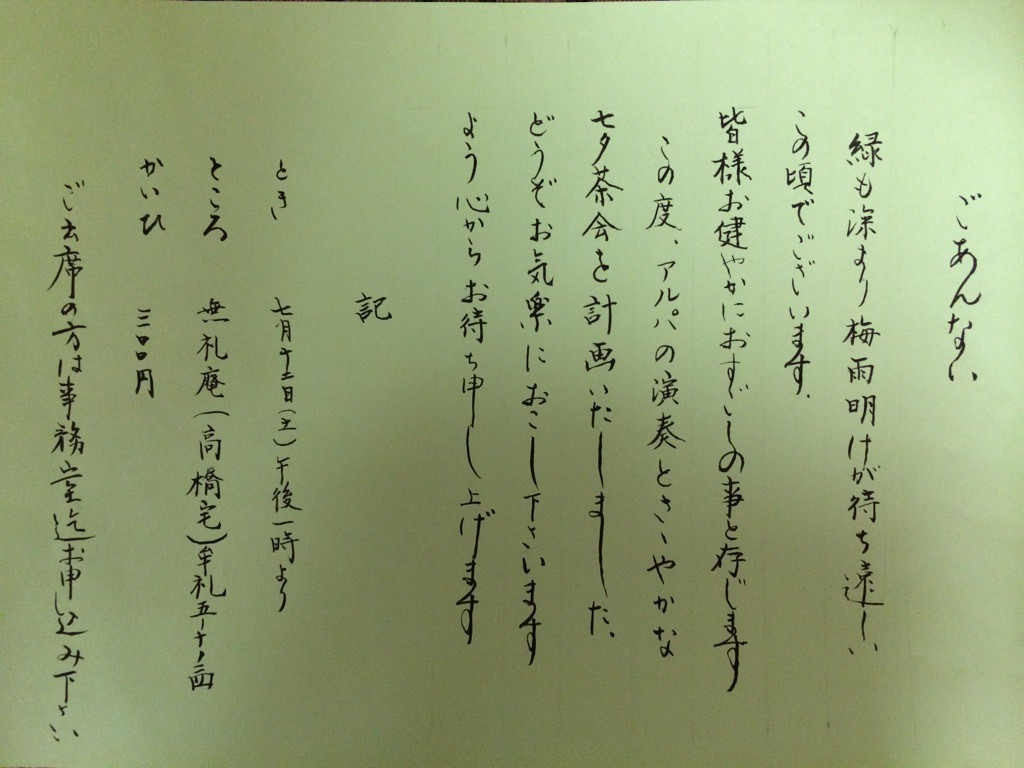 ごあんない
緑も深まり梅雨明けが待ち遠しい
この頃でございます。
皆様お健やかにおすごしの事と存じます
この度、アルパの演奏とささやかな
七夕茶会を計画いたしました、
どうぞお気楽におこし下さいます
よう心からお待ち申し上げます
記
とき 七月十二日(土)午後一時より
ところ 無礼庵(高橋宅)牟礼五ー十ー
かいひ 三〇〇円
ご出席の方は事務室迄お申し込み下さい